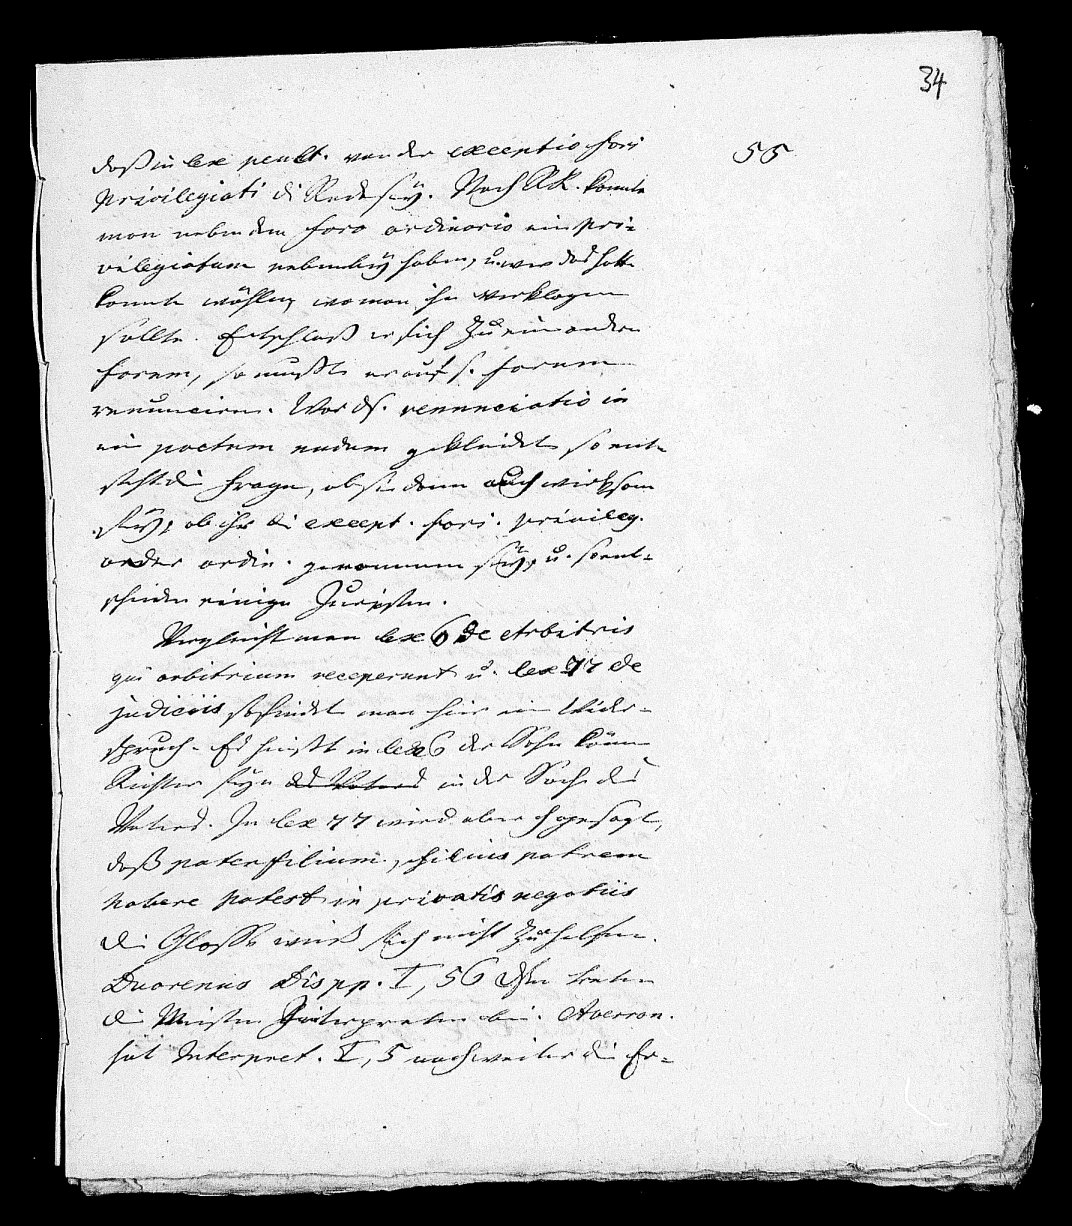 34
55
daß in lex penult. von der exceptio fori
privilegiati di Rede sey. Nach RR. konnte
man neben dem foro ordinario ein pri-
vilegiatum nebenbey haben, u. wer das hatte
konnte wählen, wo man ihn verklagen
sollte. Entschloß er sich zu einem andern
forum, so mußte er auf s. forum
renunciren. War ds. renunciatio in
ein pactum nudum gekleidet so ent-
steht di Frage, ob sie dann auch wirksam
sey, ob ihr di except. fori. privileg.
oder ordin. genommen sey, u. so ent-
scheiden einige Juristen.
Vergleicht man lex 6 de Arbitris
qui arbitrium receperunt u. lex 77 de
judiciis so findet man hier ein Wider-
spruch. Es heißt in lex 6 der Sohn könne
Richter seyn des Vaters in der Sache des
Vaters. In lex 77 wird aber gesagt,
daß pater filium, filius patrem
habere potest in privatis negotiis
di Glosse weiß sich nicht zu helfen.
Duarenus Dispp. I, 56 Ihm treten
di Meisten Interpreten bei. Averran.
jüt Interpret. I, 5 noch weiter di Er-